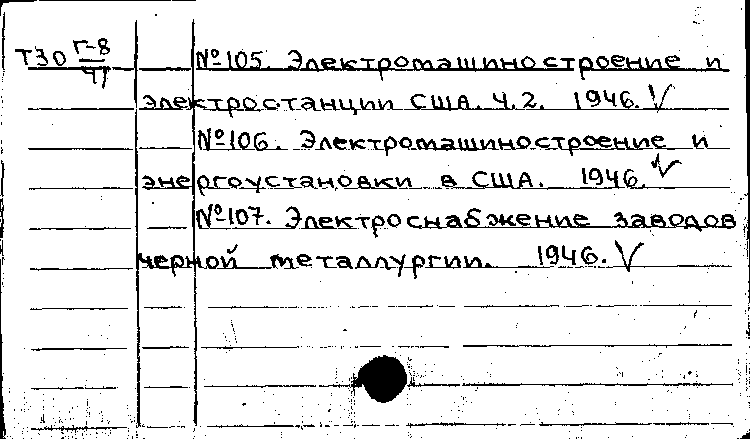 ТЗО Г-8/41 №105. Электромашиностроение и
электростанции США. Ч.2. 1946. V
№106. Электромашиностроение и
энергоустановки в США. 1946. V
№107. Электроснабжение заводов
черной металлургии. 1946. V